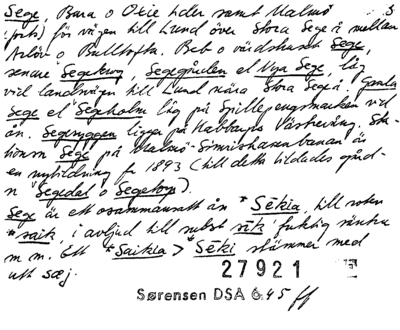 Sege, Bara o Oxie hder samt Malmö S
(förh) för vägen till Lund över Stora Sege å mellan
Arlöv o Bulltofta. Beb o värdshuset Sege,
senare Segekrog, Segegården el Nya Sege, låg
vid landsvägen till Lund nära Stora Sege å. Gamla
Sege el Segeholm låg på Spillepengsmarken vid
ån. Segemyggen ligger på Habbarps Västeräng. Sta-
tionen Sege på Malmö-Simrishamnbanan är
en nybildning fr 1893 (till detta bildades gård-
n Segedal o Segetorp).
Sege är ett osammansatt ån *Sēkia, till roten
*saik, i avljud till subst sik 'fuktig sänka
m m. Ett *Saikia > *Sēki stämmer med
utt sæj.
27921
Sørensen DSA 6.45 ff